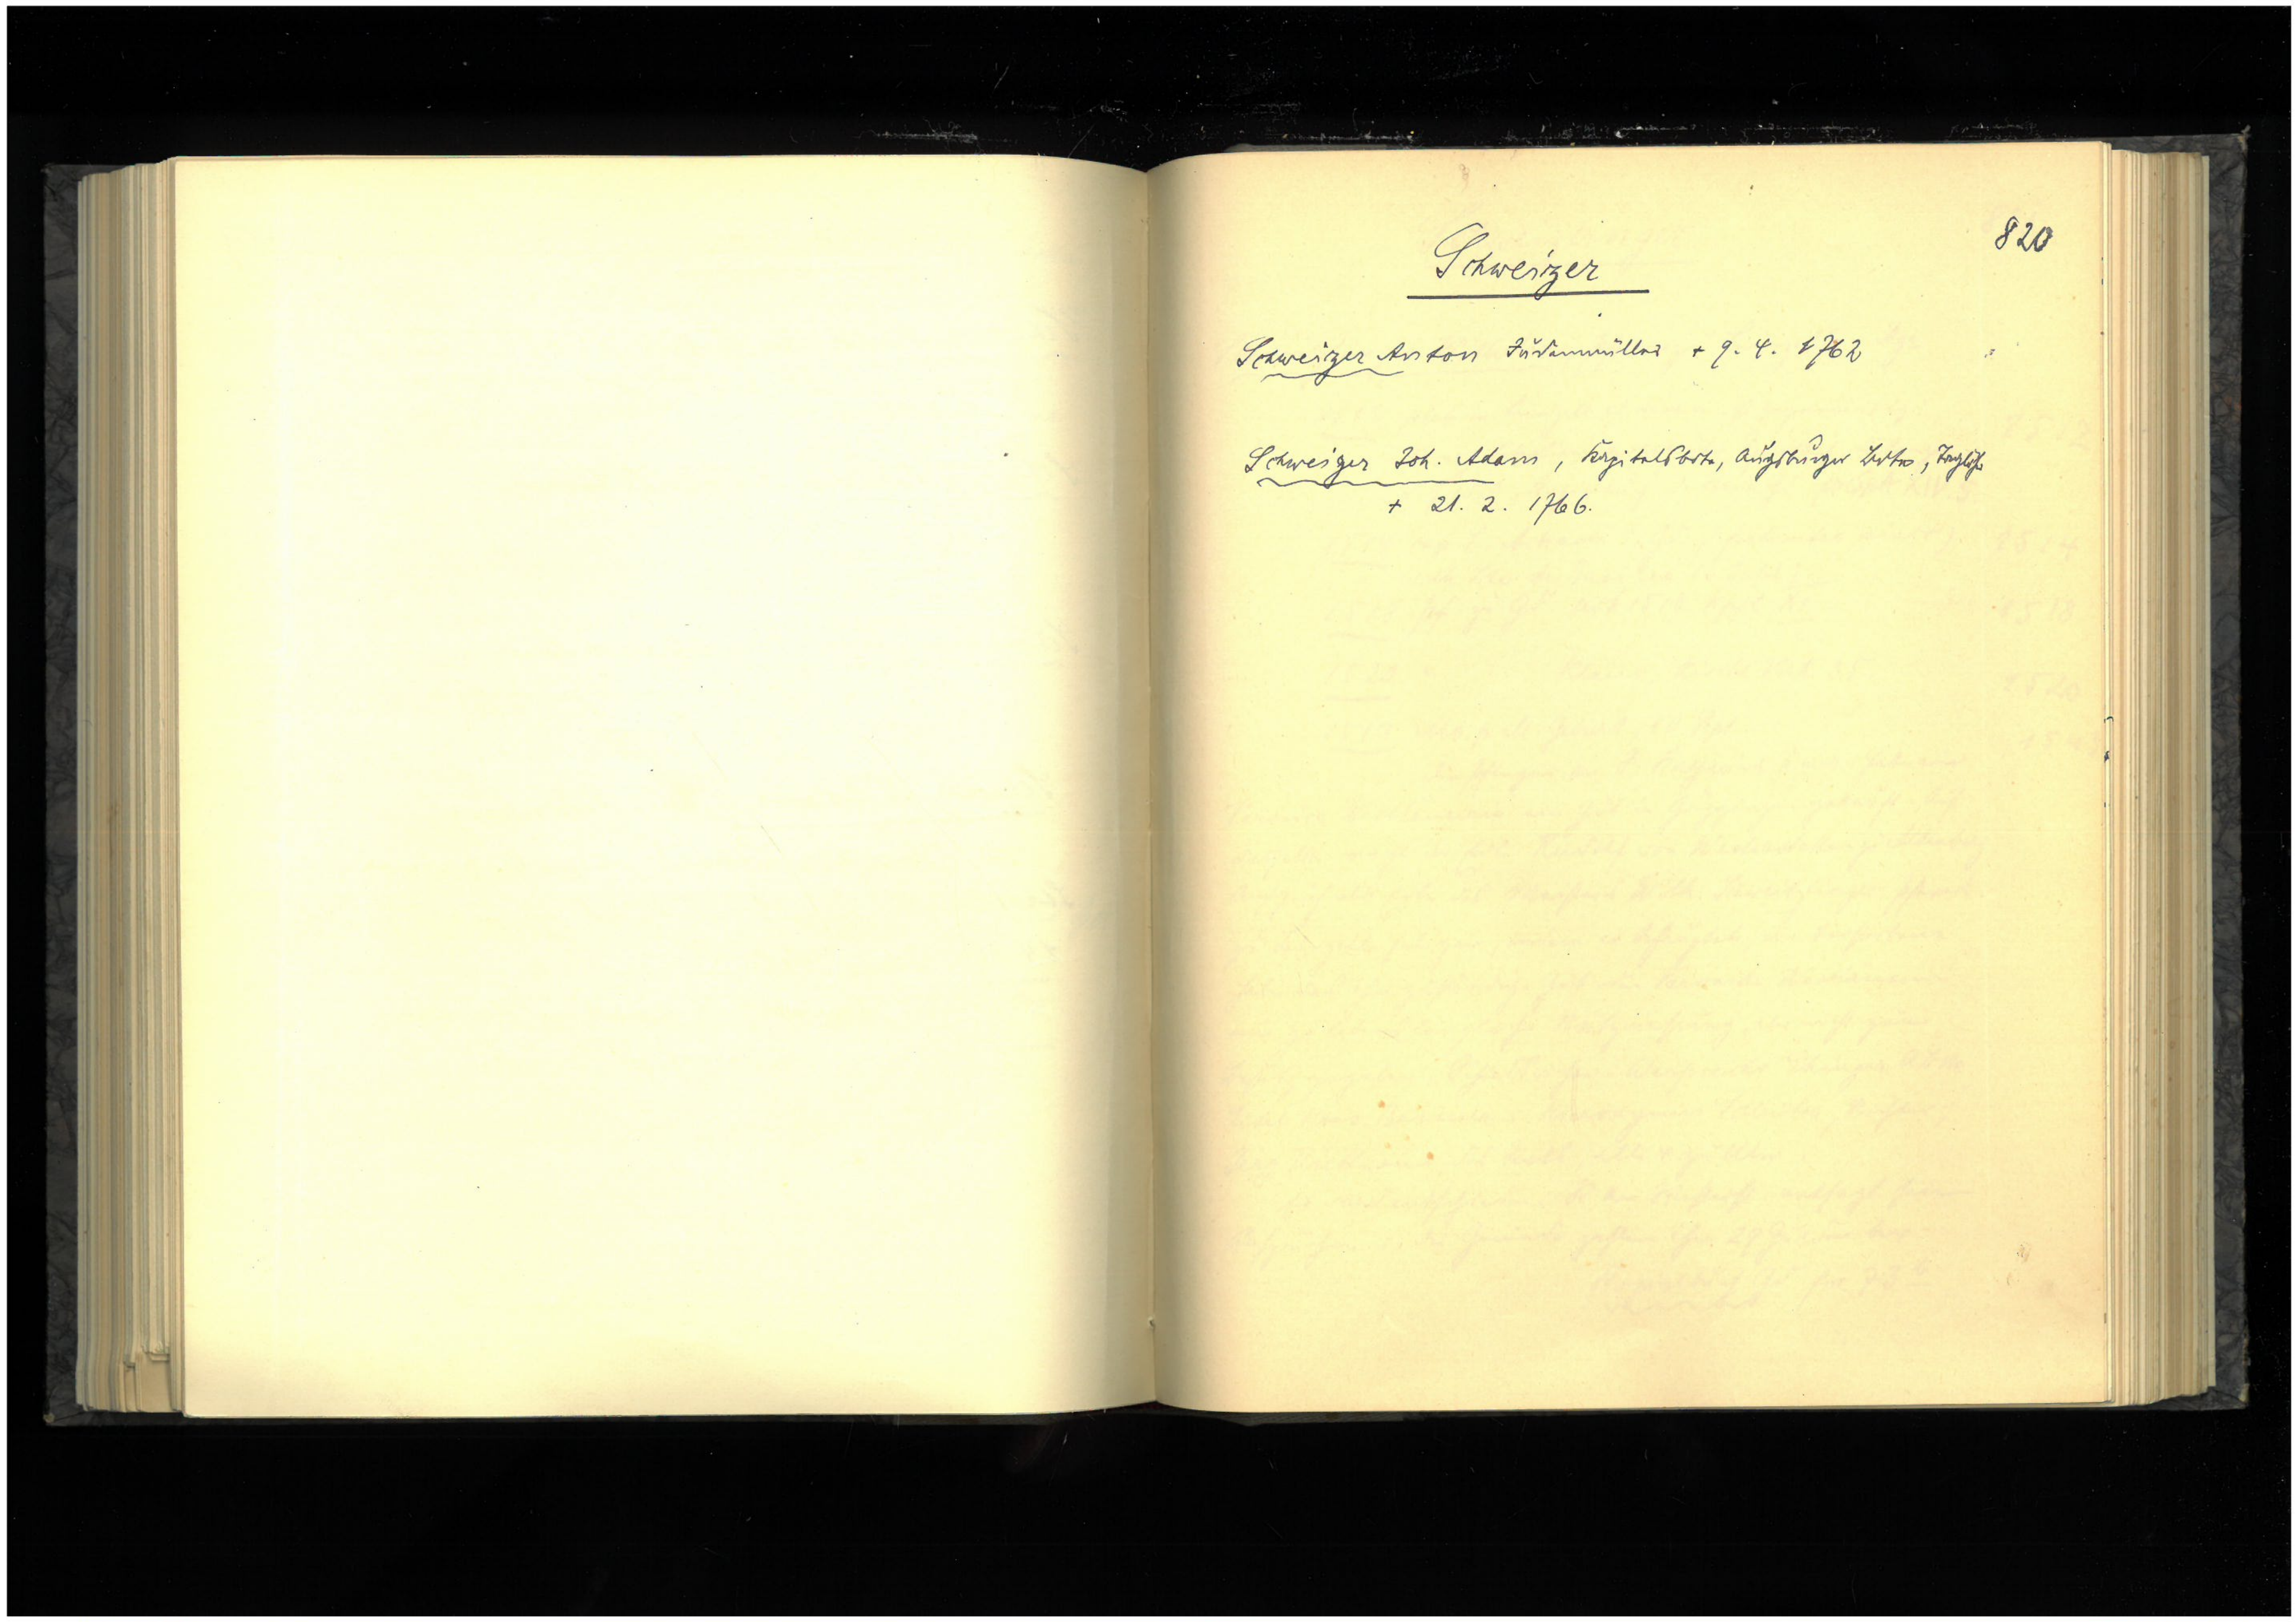 820
Schweizer
Schweizer Anton Judenmüller + 9. 4. 1762
Schweizer Joh. Adam, Kapitelsbote, Augsburger Bote,
+ 21. 2. 1766.